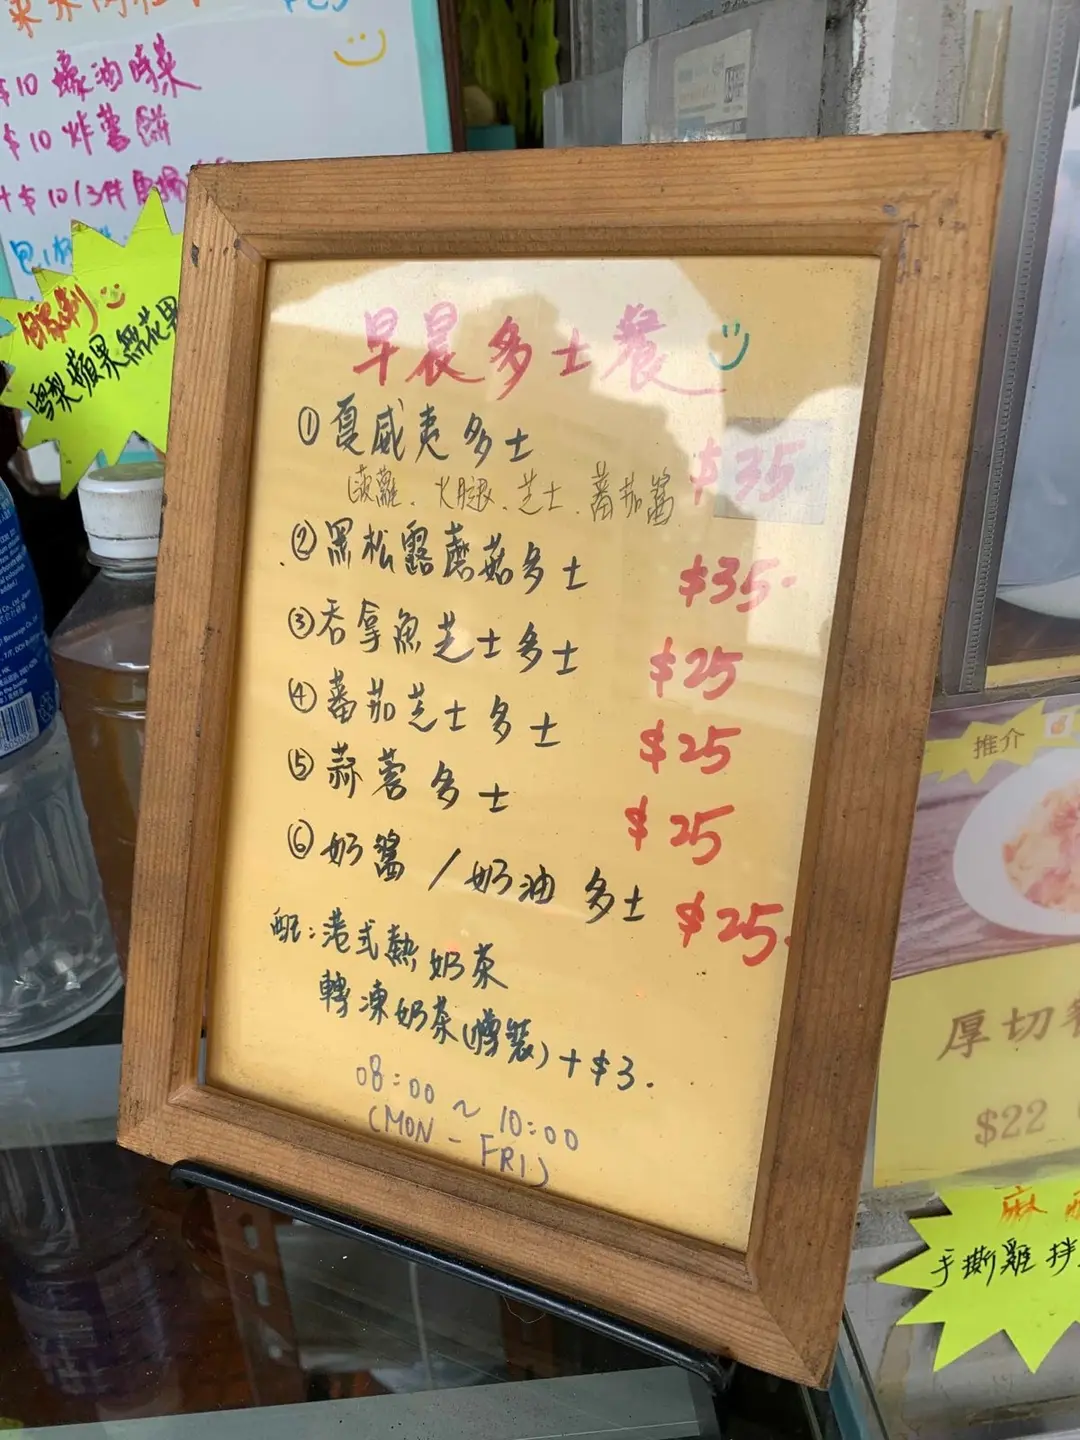 $10 蠔油時菜
$10 炸薯餅
+$10/3件
鮮制
雪梨蘋果無花果
早晨多士餐
① 夏威夷多士 $35
菠蘿、火腿、芝士、蕃茄醬
② 黑松露蘑菇多士 $35.
③ 吞拿魚芝士多士 $25
④ 蕃茄芝士多士 $25
⑤ 蒜蓉多士 $25
⑥ 奶醬/奶油多士 $25.
配:港式熱奶茶
轉凍奶茶(樽裝)+$3.
08:00~10:00
(MON-FRI)
推介
厚切
$22
麻
手撕雞拌